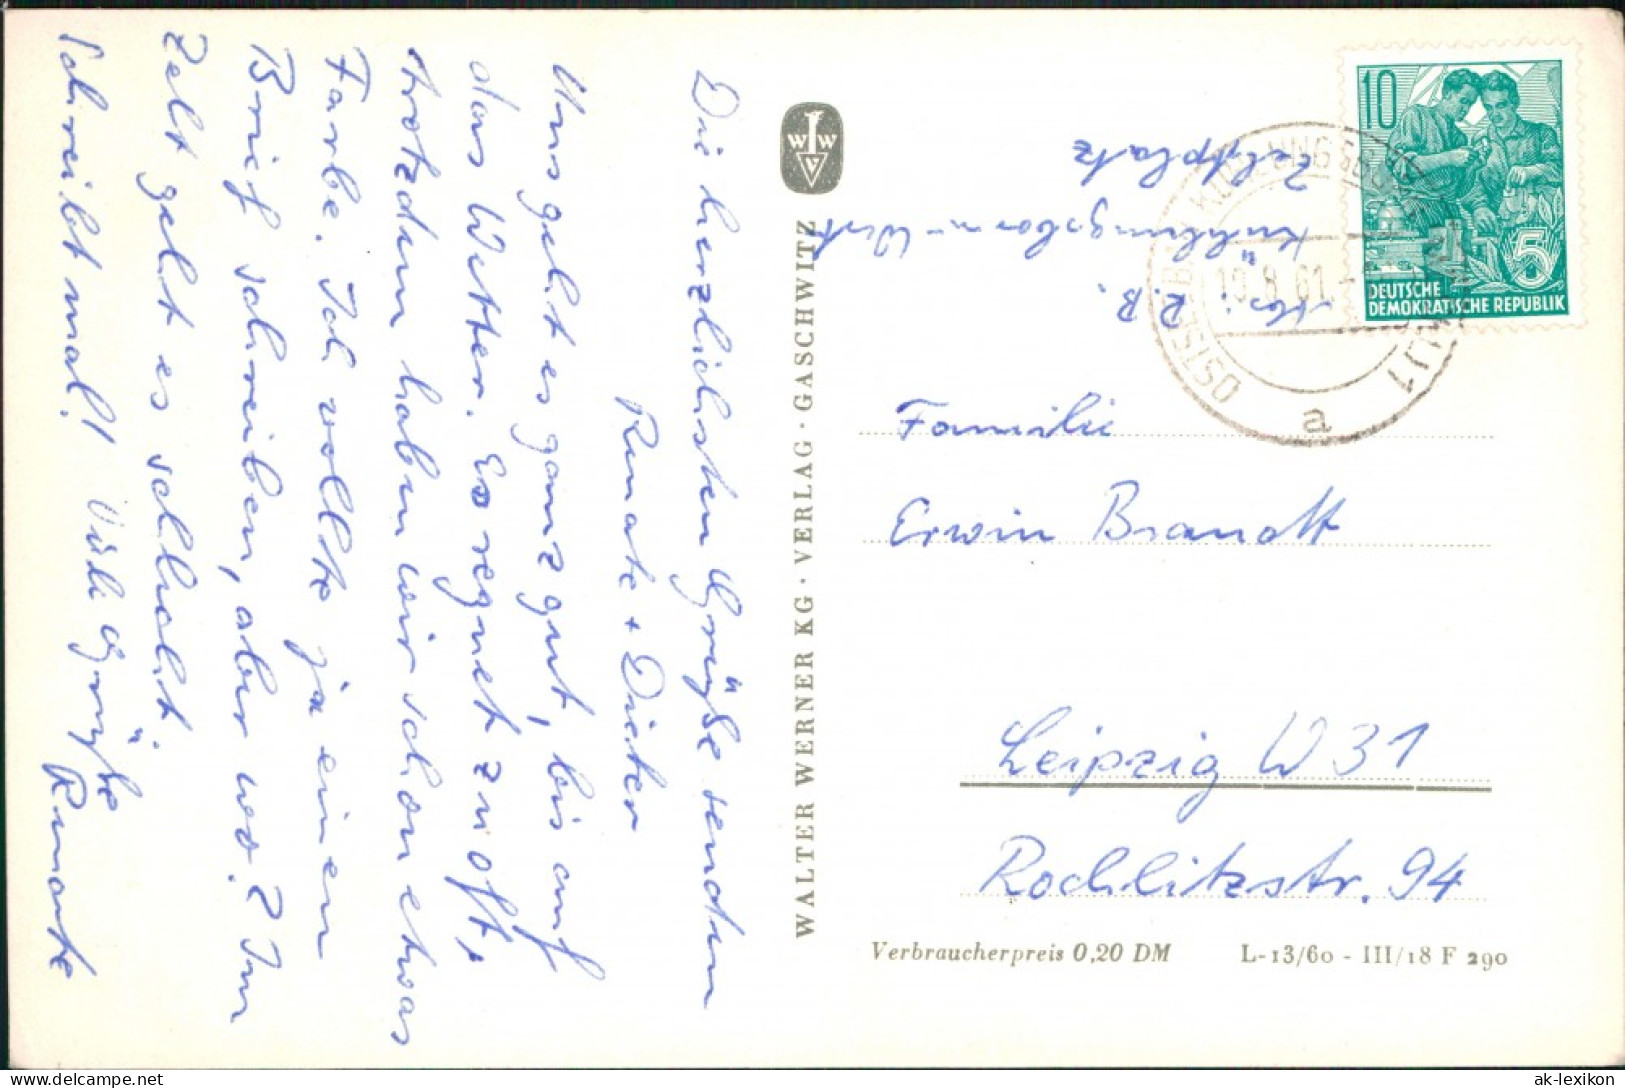 Die herzlichsten Grüße senden
Renate + Dieter
Uns geht es ganz gut, bis auf
das Wetter. Es regnet zu oft,
trotzdem haben wir schon etwas
Farbe. Ich wollte ja einen
Brief schreiben, aber wo? Im
Zelt geht es schlecht.
Schreibt mal! Viele Grüße Renate
WWV
WALTER WERNER KG · VERLAG · GASCHWITZ
z. B.
Kühlungsborn-West
Zeltplatz
OSTSEEBAD KÜHLUNGSBORN
19.8.61
a
10
5
DEUTSCHE
DEMOKRATISCHE REPUBLIK
Familie
Erwin Brandt
Leipzig W 31
Rochlitzstr. 94
Verbraucherpreis 0,20 DM
L-13/60 - III/18 F 290
delcampe.net
ak-lexikon